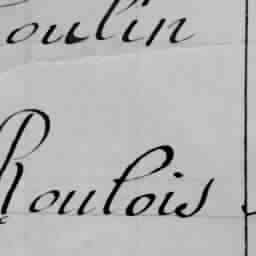 oulin
Roulois